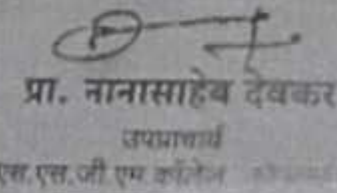 प्रा. नानासाहेब देवकर
उपप्राचार्य
एस.एस.जी एम कॉलेज